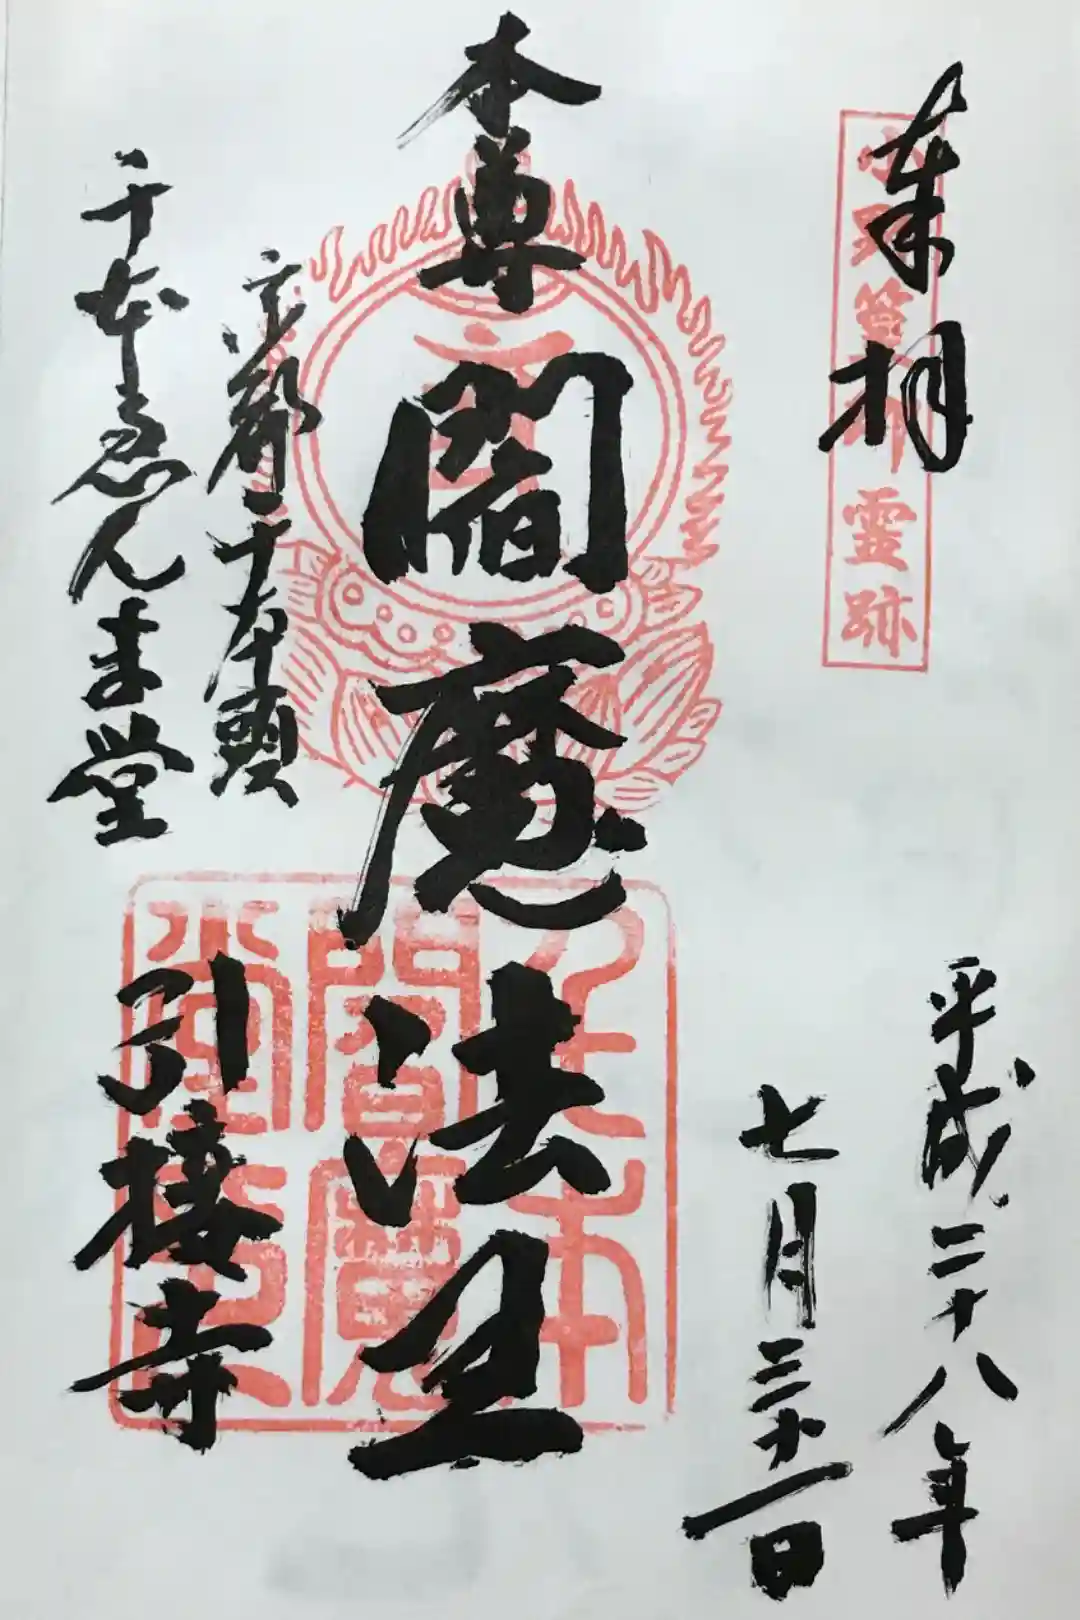 奉拝
小野篁卿霊跡
平成二十八年
七月三十一日
本尊 閻魔法王
京都千本頭
千本ゑんま堂
引接寺
千本
閻魔
堂印